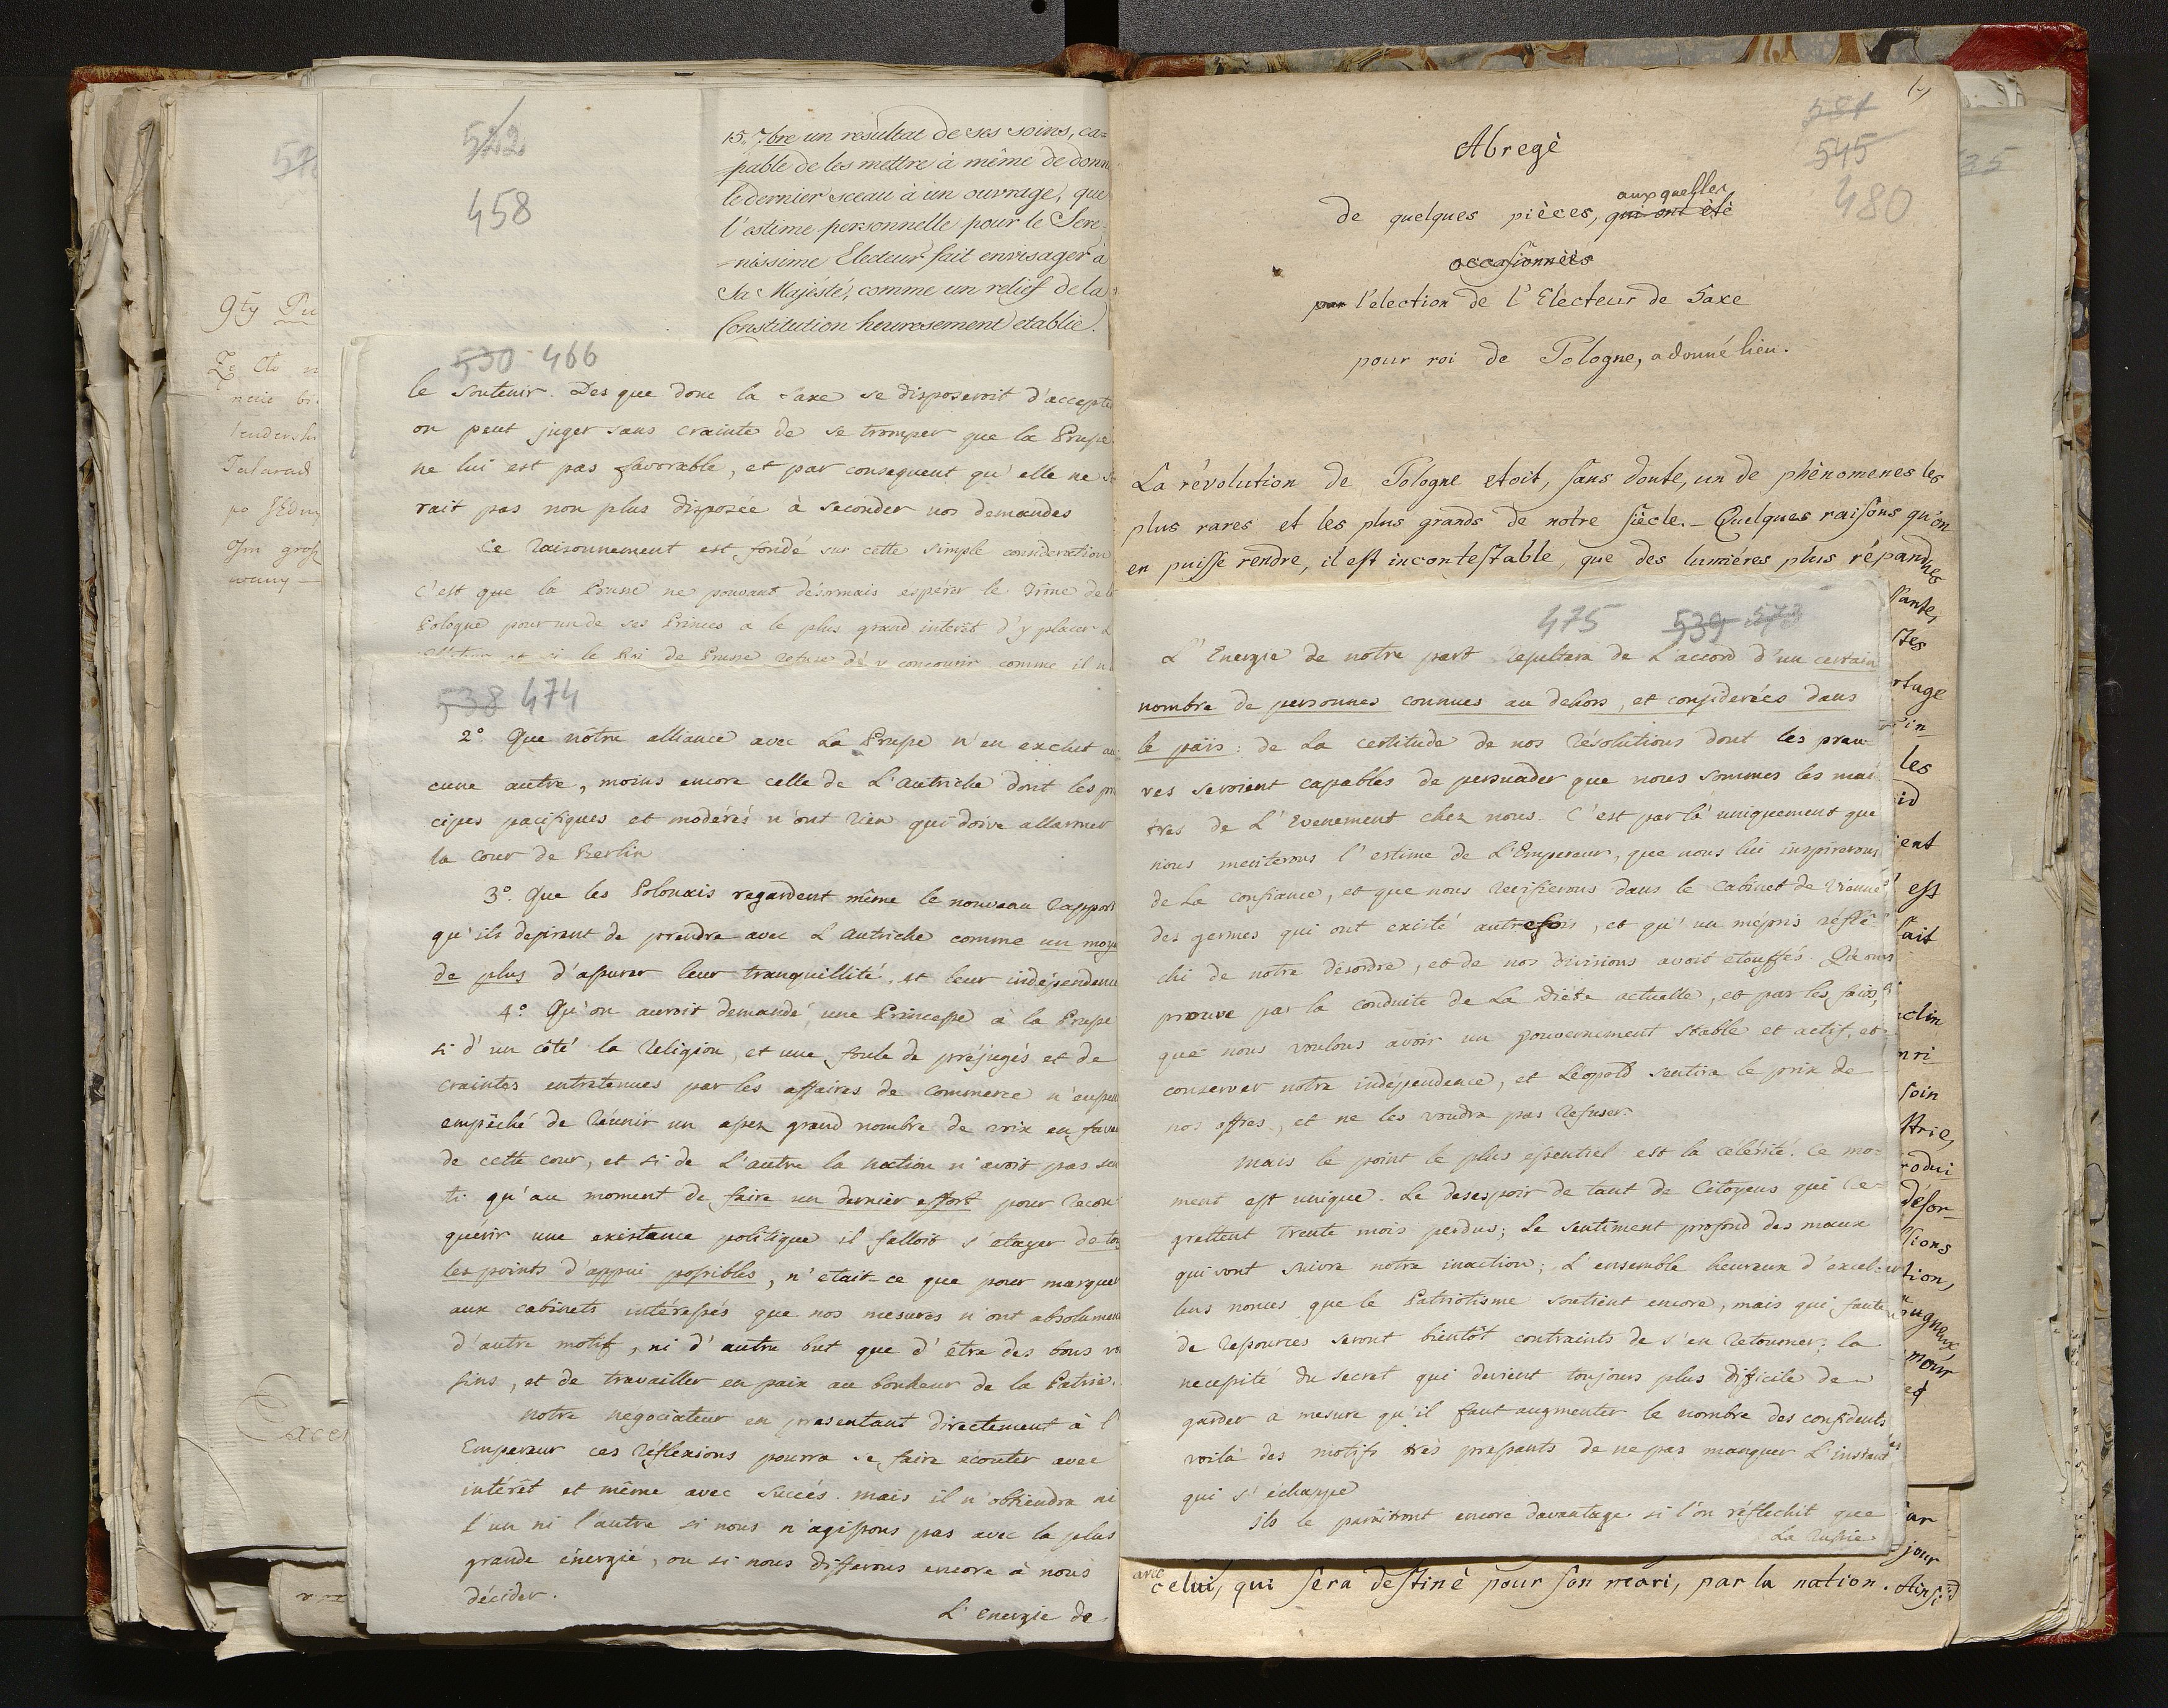 522
458
15. 7bre un résultat de ses soins, ca=
pable de les mettre à même de donn
le dernier sceau à un ouvrage, que
l'estime personnelle pour le Sere=
nissime Electeur fait envisager à
Sa Majesté, comme un relief de la
Constitution heureusement etablie.
9ty
530 466
le soutenir. Des que donc la Saxe se disposeroit d'accepte
on peut juger sans crainte de se tromper que la Prusse
ne lui est pas favorable, et par consequent qu'elle ne se
rait pas non plus disposée à seconder nos demandes
Ce raisonnement est fondé sur cette simple consideration
c'est que la Prusse ne pouvant désormais espérer le Trône de
Pologne pour un de ses Princes a le plus grand interêt d'y placer
et si le Roi de Prusse refuse d'y concourir comme il
538 474
2° Que nôtre alliance avec la Prusse n'en exclut au
cune autre, moins encore celle de L'Autriche dont les pr
cipes pacifiques et modérés n'ont rien qui doive allarmer
la cour de Berlin
3°. Que les Polonais regardent même le nouveau rapport
qu'ils desirent de prendre avec L'Autriche comme un moye
de plus d'assurer leur tranquillité et leur indépendence
4° Qu'on auroit demandé une Princesse à la Prusse
si d'un côté la religion, et une foule de préjugés et de
craintes entretenues par les affaires de commerce n'eussent
empêché de réunir un assez grand nombre de voix en fave
de cette cour, et si de L'autre la nation n'avoit pas sen
ti qu'au moment de faire un dernier effort pour recon
quérir une existance politique il falloit s'etayer de tou
les points d'appui possibles, n'etait-ce que pour marquer
aux cabinets intéressés que nos mesures n'ont absolument
d'autre motif, ni d'autre but que d'être des bons vo
sins, et de travailler en paix au bonheur de la Patrie.
Notre negociateur en presentant directement à l'
Empereur ces réflexions pourra se faire écouter avec
intérêt et même avec succés. mais il n'obtiendra ni
l'un ni l'autre si nous n'agissons pas avec la plus
grande énergie, ou si nous differons encore à nous
décider.
L'energie de
551
545
480
Abregè
de quelques pièces, qui ont été auxquelles
occasionnées
par l'election de l'Electeur de Saxe
pour roi de Pologne, a donné lieu.
La révolution de Pologne etoit, sans doute, un de phènomenes les
plus rares et les plus grands de notre siècle. - Quelques raisons qu'on
en puisse rendre, il est incontestable, que des lumiéres plus répandues
475 539 573
L'Energie de notre part resultera de L'accord d'un certain
nombre de personnes connues au dehors, et considerées dans
le païs: de la certitude de nos résolutions dont les preu=
ves seroient capables de persuader que nous sommes les mai
tres de L'Evenement chez nous. C'est par là uniquement que
nous meriterons l'estime de L'Empereur, que nous lui inspirerons
de la confiance, et que nous revifierons dans le Cabinet de Vienne
des germes qui ont existé autrefois, et qu'un mépris réflé=
chi de notre désordre, et de nos divisions avoit étouffés. Qu'on
prouve par la conduite de la Diéte actuelle, et par les faits,
que nous voulons avoir un gouvernement stable et actif, et
conserver notre indépendence, et Léopold sentira le prix de
nos offres, et ne les voudra pas refuser.
Mais le point le plus essentiel est la célérité. Ce mo=
ment est unique. Le desespoir de tant de Citoyens qui re=
grettent trente mois perdus; Le sentiment profond des maux
qui vont suivre notre inaction; L'ensemble heureux d'excel=
lens nonces que le Patriotisme soutient encore, mais qui faute
de ressources seront bientôt contraints de s'en retourner; la
necessité du secret qui devient toujours plus difficile de
garder a mesure qu'il faut augmenter le nombre des confidents
voilà des motifs très pressants de ne pas manquer L'instant
qui s'échappe
Ils le paroitront encore davantage si l'on réflechit que
La Russie
avec
celui, qui sera destinè pour son mari, par la nation.